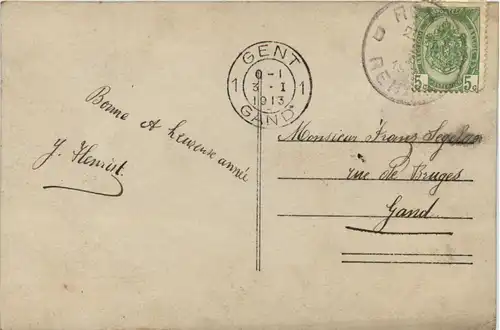 GENT
1 0-1 1
3-I
1913
GAND
5c 5c
Bonne & heureuse année
J. Henriet
Monsieur Franz
rue de Bruges
Gand